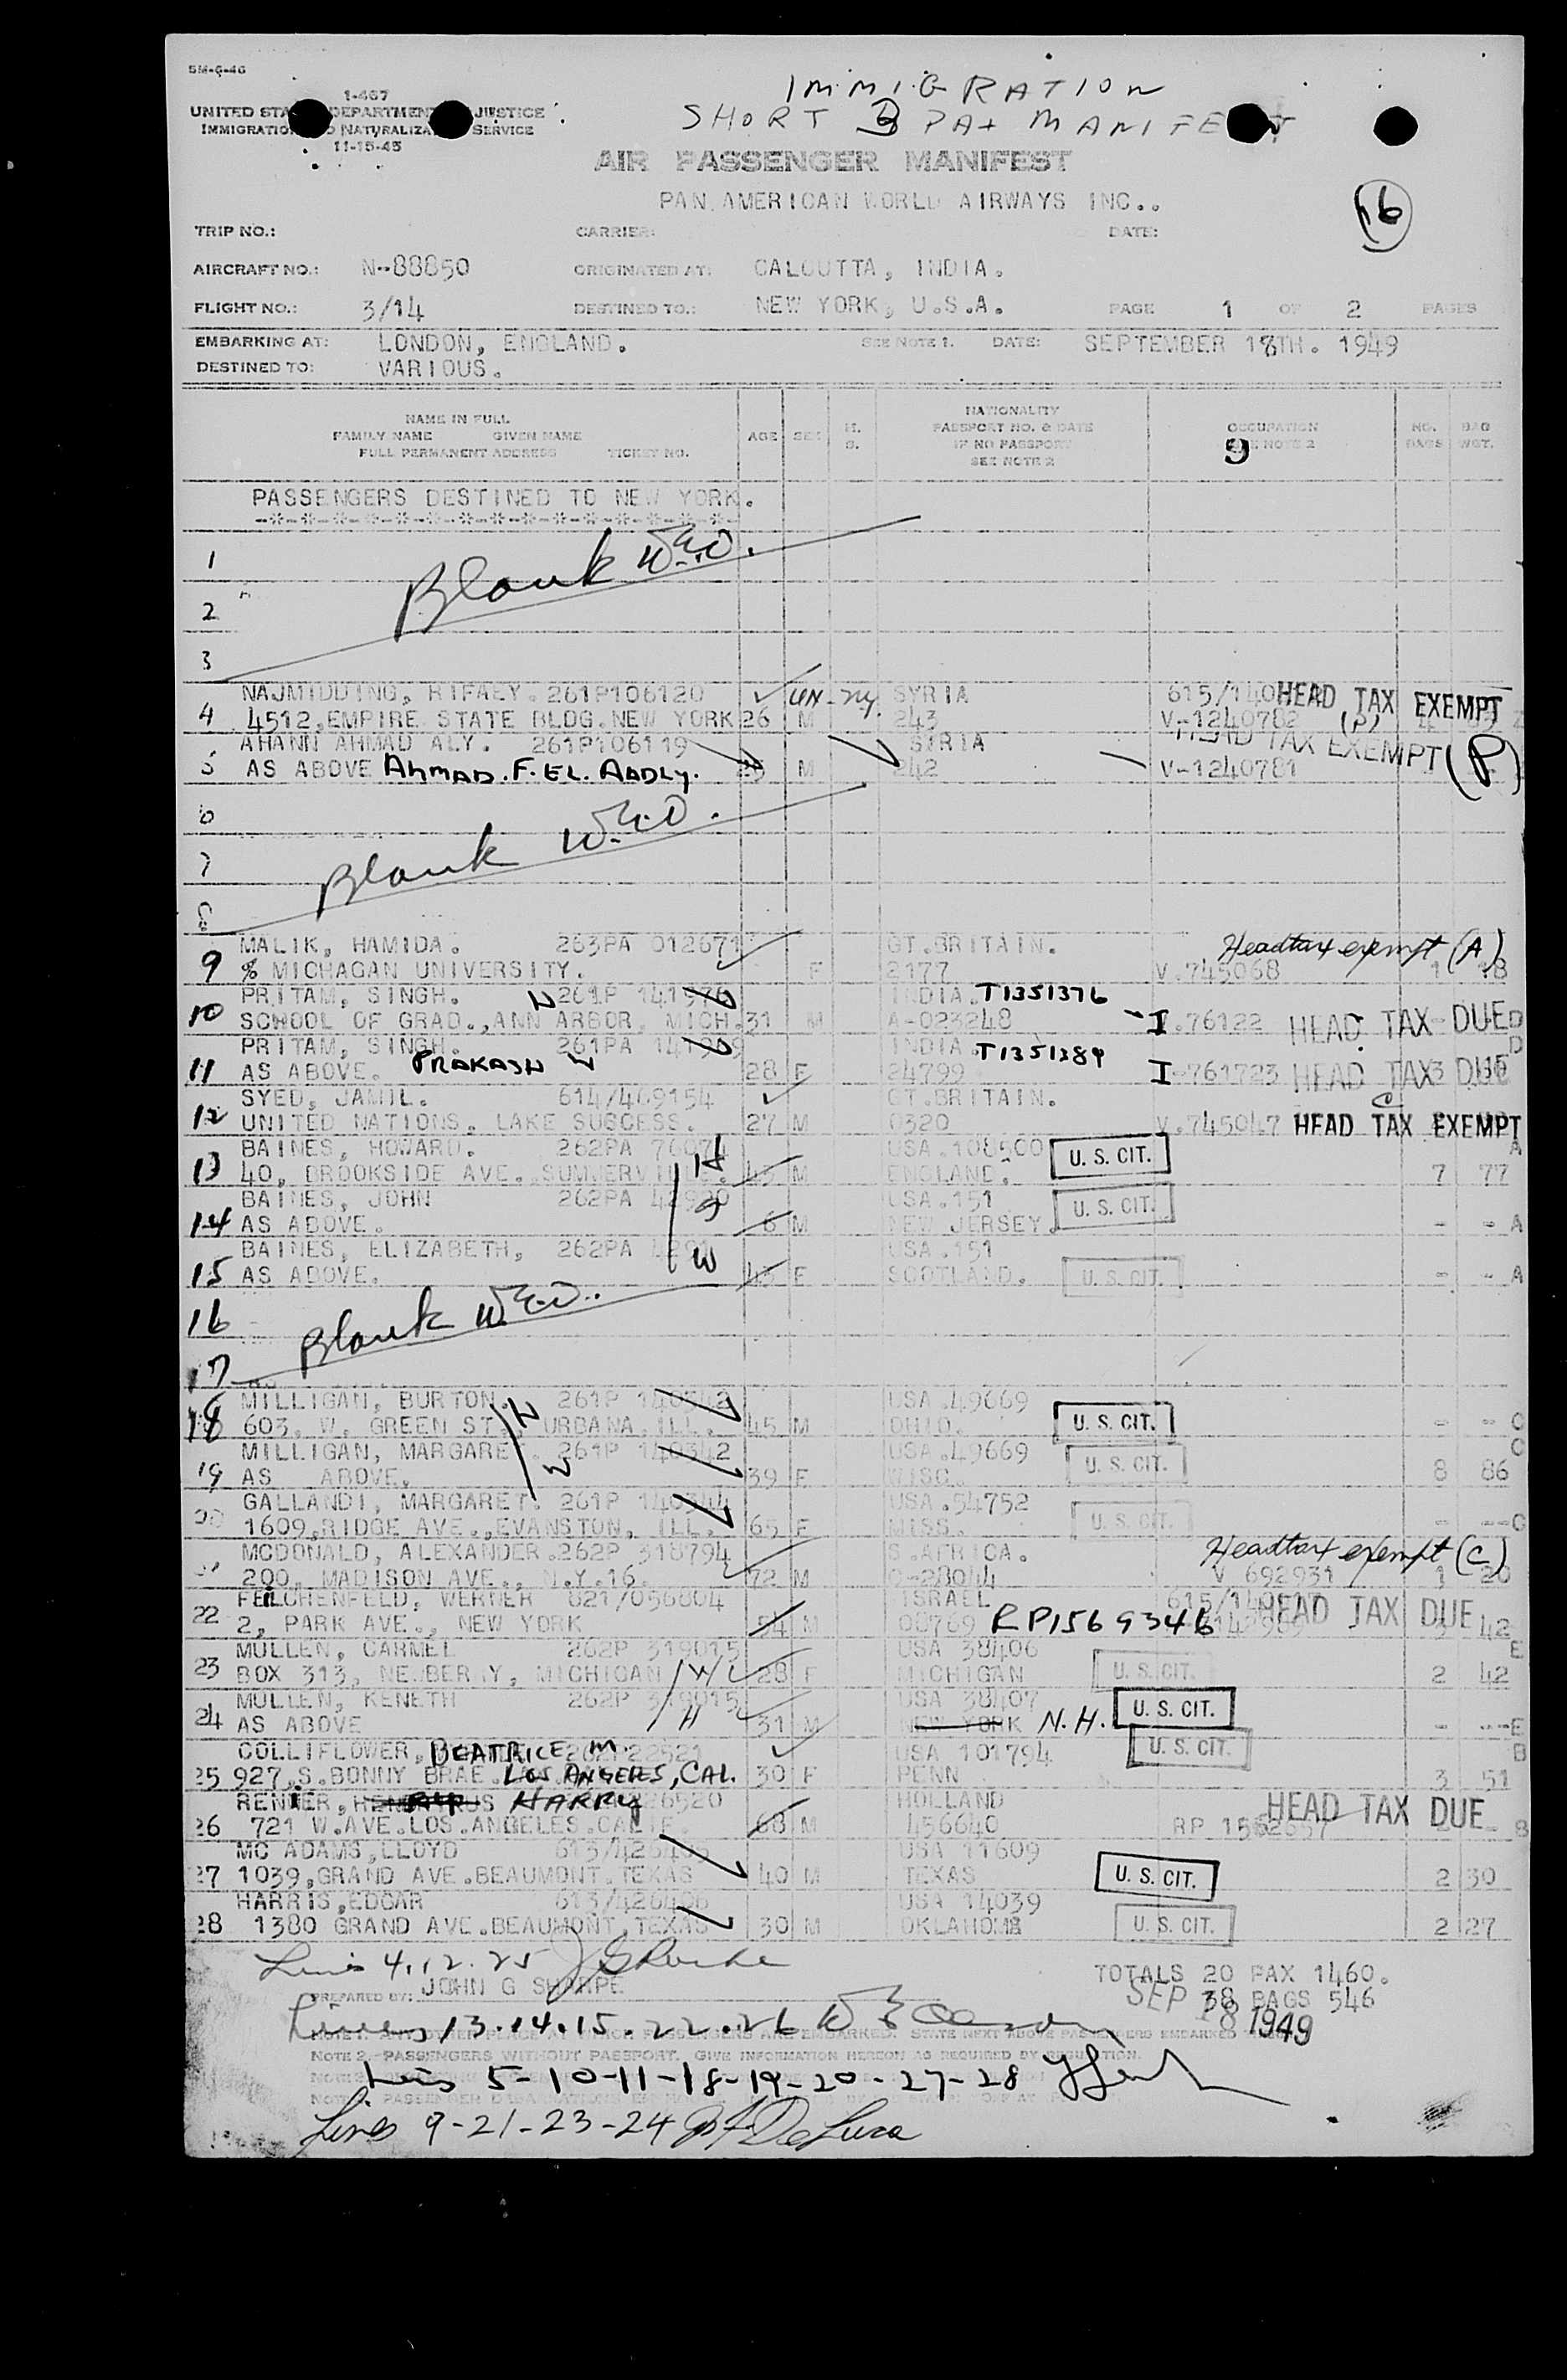 SM-6-46
IMMIGRATION
1-467
UNITED STATES DEPARTMENT JUSTICE
SHORT B PAX MANIFEST
IMMIGRATION NATURALIZATION SERVICE
11-15-45
AIR PASSENGER MANIFEST
PAN AMERICAN WORLD AIRWAYS INC..
16
TRIP NO.: CARRIER: DATE:
AIRCRAFT NO.: N-88850 ORIGINATED AT: CALCUTTA, INDIA.
FLIGHT NO.: 3/14 DESTINED TO.: NEW YORK, U.S.A. PAGE 1 OF 2 PAGES
EMBARKING AT: LONDON, ENGLAND. SEE NOTE 1. DATE: SEPTEMBER 18TH. 1949
DESTINED TO: VARIOUS.
NAME IN FULL
FAMILY NAME GIVEN NAME
FULL PERMANENT ADDRESS TICKET NO.
AGE SEX
NATIONALITY
PASSPORT NO. & DATE
IF NO PASSPORT
SEE NOTE 2
OCCUPATION
SEE NOTE 2
9
NO. BAGS
BAG WGT.
PASSENGERS DESTINED TO NEW YORK.
-*-*-*-*-*-*-*-*-*-*-*-*-*-*-*-
1 Blank W.E.O.
2
3
NAJMIDDING, RIFAEY. 261P106120 UN-NY. SYRIA HEAD TAX EXEMPT
4 4512,EMPIRE STATE BLDG.NEW YORK 26 M 243 V-1240782 (P)
AHANN AHMAD ALY. 261P106119 SIRIA HEAD TAX EXEMPT (P)
5 AS ABOVE AHMAD.F.EL.AADLY. M 242 V-1240781
6
7 Blank W.E.O.
8
MALIK, HAMIDA. 263PA 012671 GT.BRITAIN. Headtax exempt (A)
9 % MICHAGAN UNIVERSITY. F 2177 V.745068 1 18
PRITAM, SINGH. 261P INDIA. T1351376
10 SCHOOL OF GRAD.,ANN ARBOR. MICH. 31 M A-023248 I.76122 HEAD TAX DUE D
PRITAM, SINGH. 261PA INDIA. T1351389 D
11 AS ABOVE. PRAKASH W 28 F 24799 I-761723 HEAD TAX DUE
SYED, JAMIL. 614/469154 GT.BRITAIN. C
12 UNITED NATIONS. LAKE SUCCESS. 27 M 0320 V.745047 HEAD TAX EXEMPT
BAINES, HOWARD. 262PA 76074 H USA.108500 U. S. CIT. A
13 40, BROOKSIDE AVE. M ENGLAND. 7 77
BAINES, JOHN 262PA USA.151 U. S. CIT.
14 AS ABOVE. 6 M NEW JERSEY. - - A
BAINES, ELIZABETH, 262PA W USA.151
15 AS ABOVE. 43 F SCOTLAND. U. S. CIT. - - A
16
17 Blank W.E.O.
MILLIGAN, BURTON. 261P H USA.49669
18 603, W. GREEN ST., URBANA.ILL. 45 M OHIO. U. S. CIT. - -- C
MILLIGAN, MARGARET. 261P 140342 W USA.49669 C
19 AS ABOVE. 39 F WISC. U. S. CIT. 8 86
GALLANDI, MARGARET. 261P 140344 USA.54752
20 1609,RIDGE AVE.,EVANSTON, ILL. 65 F MISS. U. S. CIT. - -- C
MCDONALD, ALEXANDER.262P 318794 S.AFRICA. Headtax exempt (C)
200, MADISON AVE., N.Y.16. 72 M 0-28044 V 692931 1 20
FEILCHENFELD, WERNER 621/056804 ISRAEL
22 2, PARK AVE., NEW YORK 54 M 08769 RP1569346 HEAD TAX DUE 42
MULLEN, CARMEL 262P 319015 USA 38406 E
23 BOX 313, NEWBERRY, MICHIGAN W 28 F MICHIGAN U. S. CIT. 2 42
MULLEN, KENETH 262P 319015 USA 38407
24 AS ABOVE H 31 M NEW YORK N.H. U. S. CIT. - --E
COLLIFLOWER, BEATRICE M. USA 101794 U. S. CIT. B
25 927.S.BONNY BRAE. LOS ANGELES, CAL. 30 F PENN 3 51
RENIER, HARRY HOLLAND
26 721 W.AVE.LOS.ANGELES.CALIF. 68 M 456640 RP 1562657 HEAD TAX DUE - B
MC ADAMS,LLOYD USA 11609
27 1039,GRAND AVE.BEAUMONT.TEXAS 40 M TEXAS U. S. CIT. 2 30
HARRIS,EDGAR 613/426406 USA 14039
28 1380 GRAND AVE.BEAUMONT.TEXAS 30 M OKLAHOMA U. S. CIT. 2 27
Lines 4.12.25
TOTALS 20 PAX 1460.
PREPARED BY: JOHN G SHARPE
38 BAGS 546
SEP 18 1949
Lines 13.14.15.22.26
NOTE 2.-PASSENGERS WITHOUT PASSPORT. GIVE INFORMATION HEREON AS REQUIRED BY REGULATION.
Lines 5-10-11-18-19-20-27-28
Lines 9-21-23-24 DeLuca